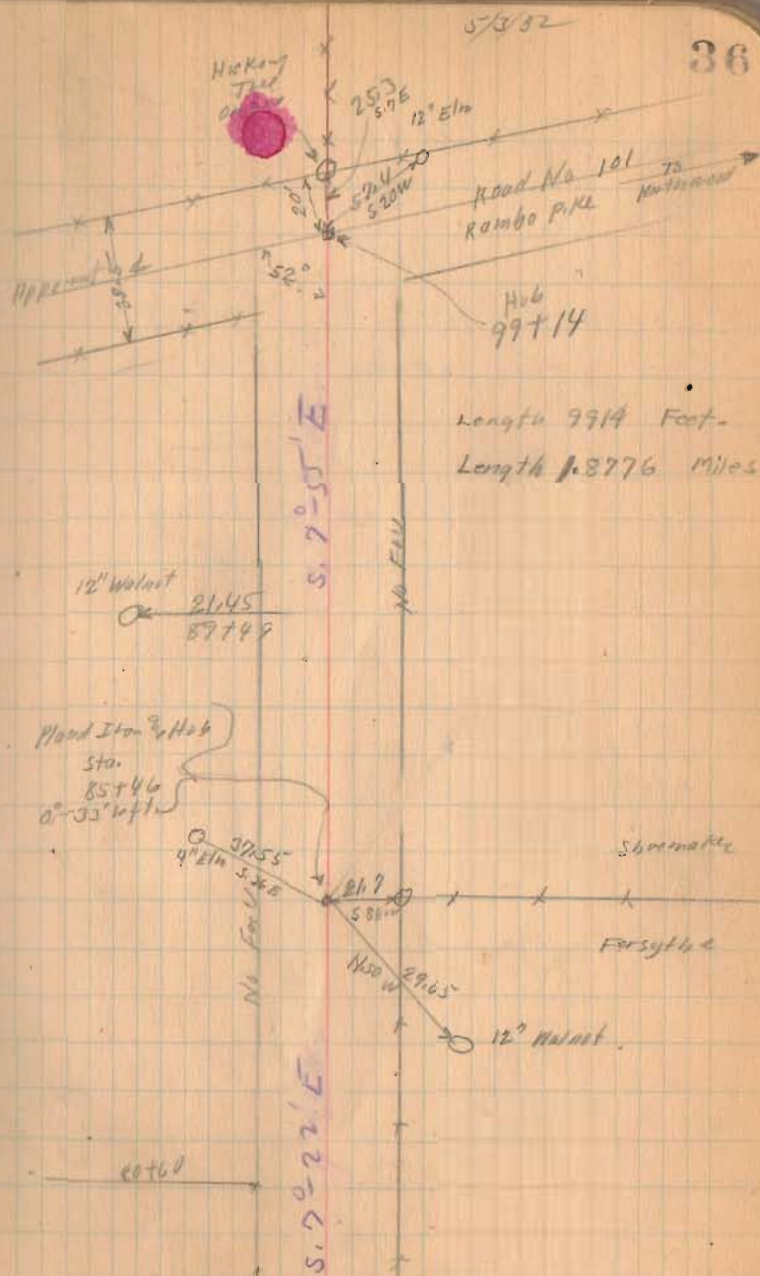 5/3/32
36
Hickory
Tree
25.3
S.7E
12" Elm
20'
52.4
S20W
Road No 101
Rambo Pike
To
Apparent ℄
38.5
52°
Hub
99+14
Length 9914 Feet.
Length 1.8776 Miles
S. 7°-55' E
No Fence
12" Walnut
21.45
89+49
Iron Hub
Sta.
85+46
0°-33' left
4" Elm
37.55
S.36E
21.7
Shoemaker
Forsythe
No Fence
N.50 W
29.65
12" Walnut
S. 7°-22' E
80+60